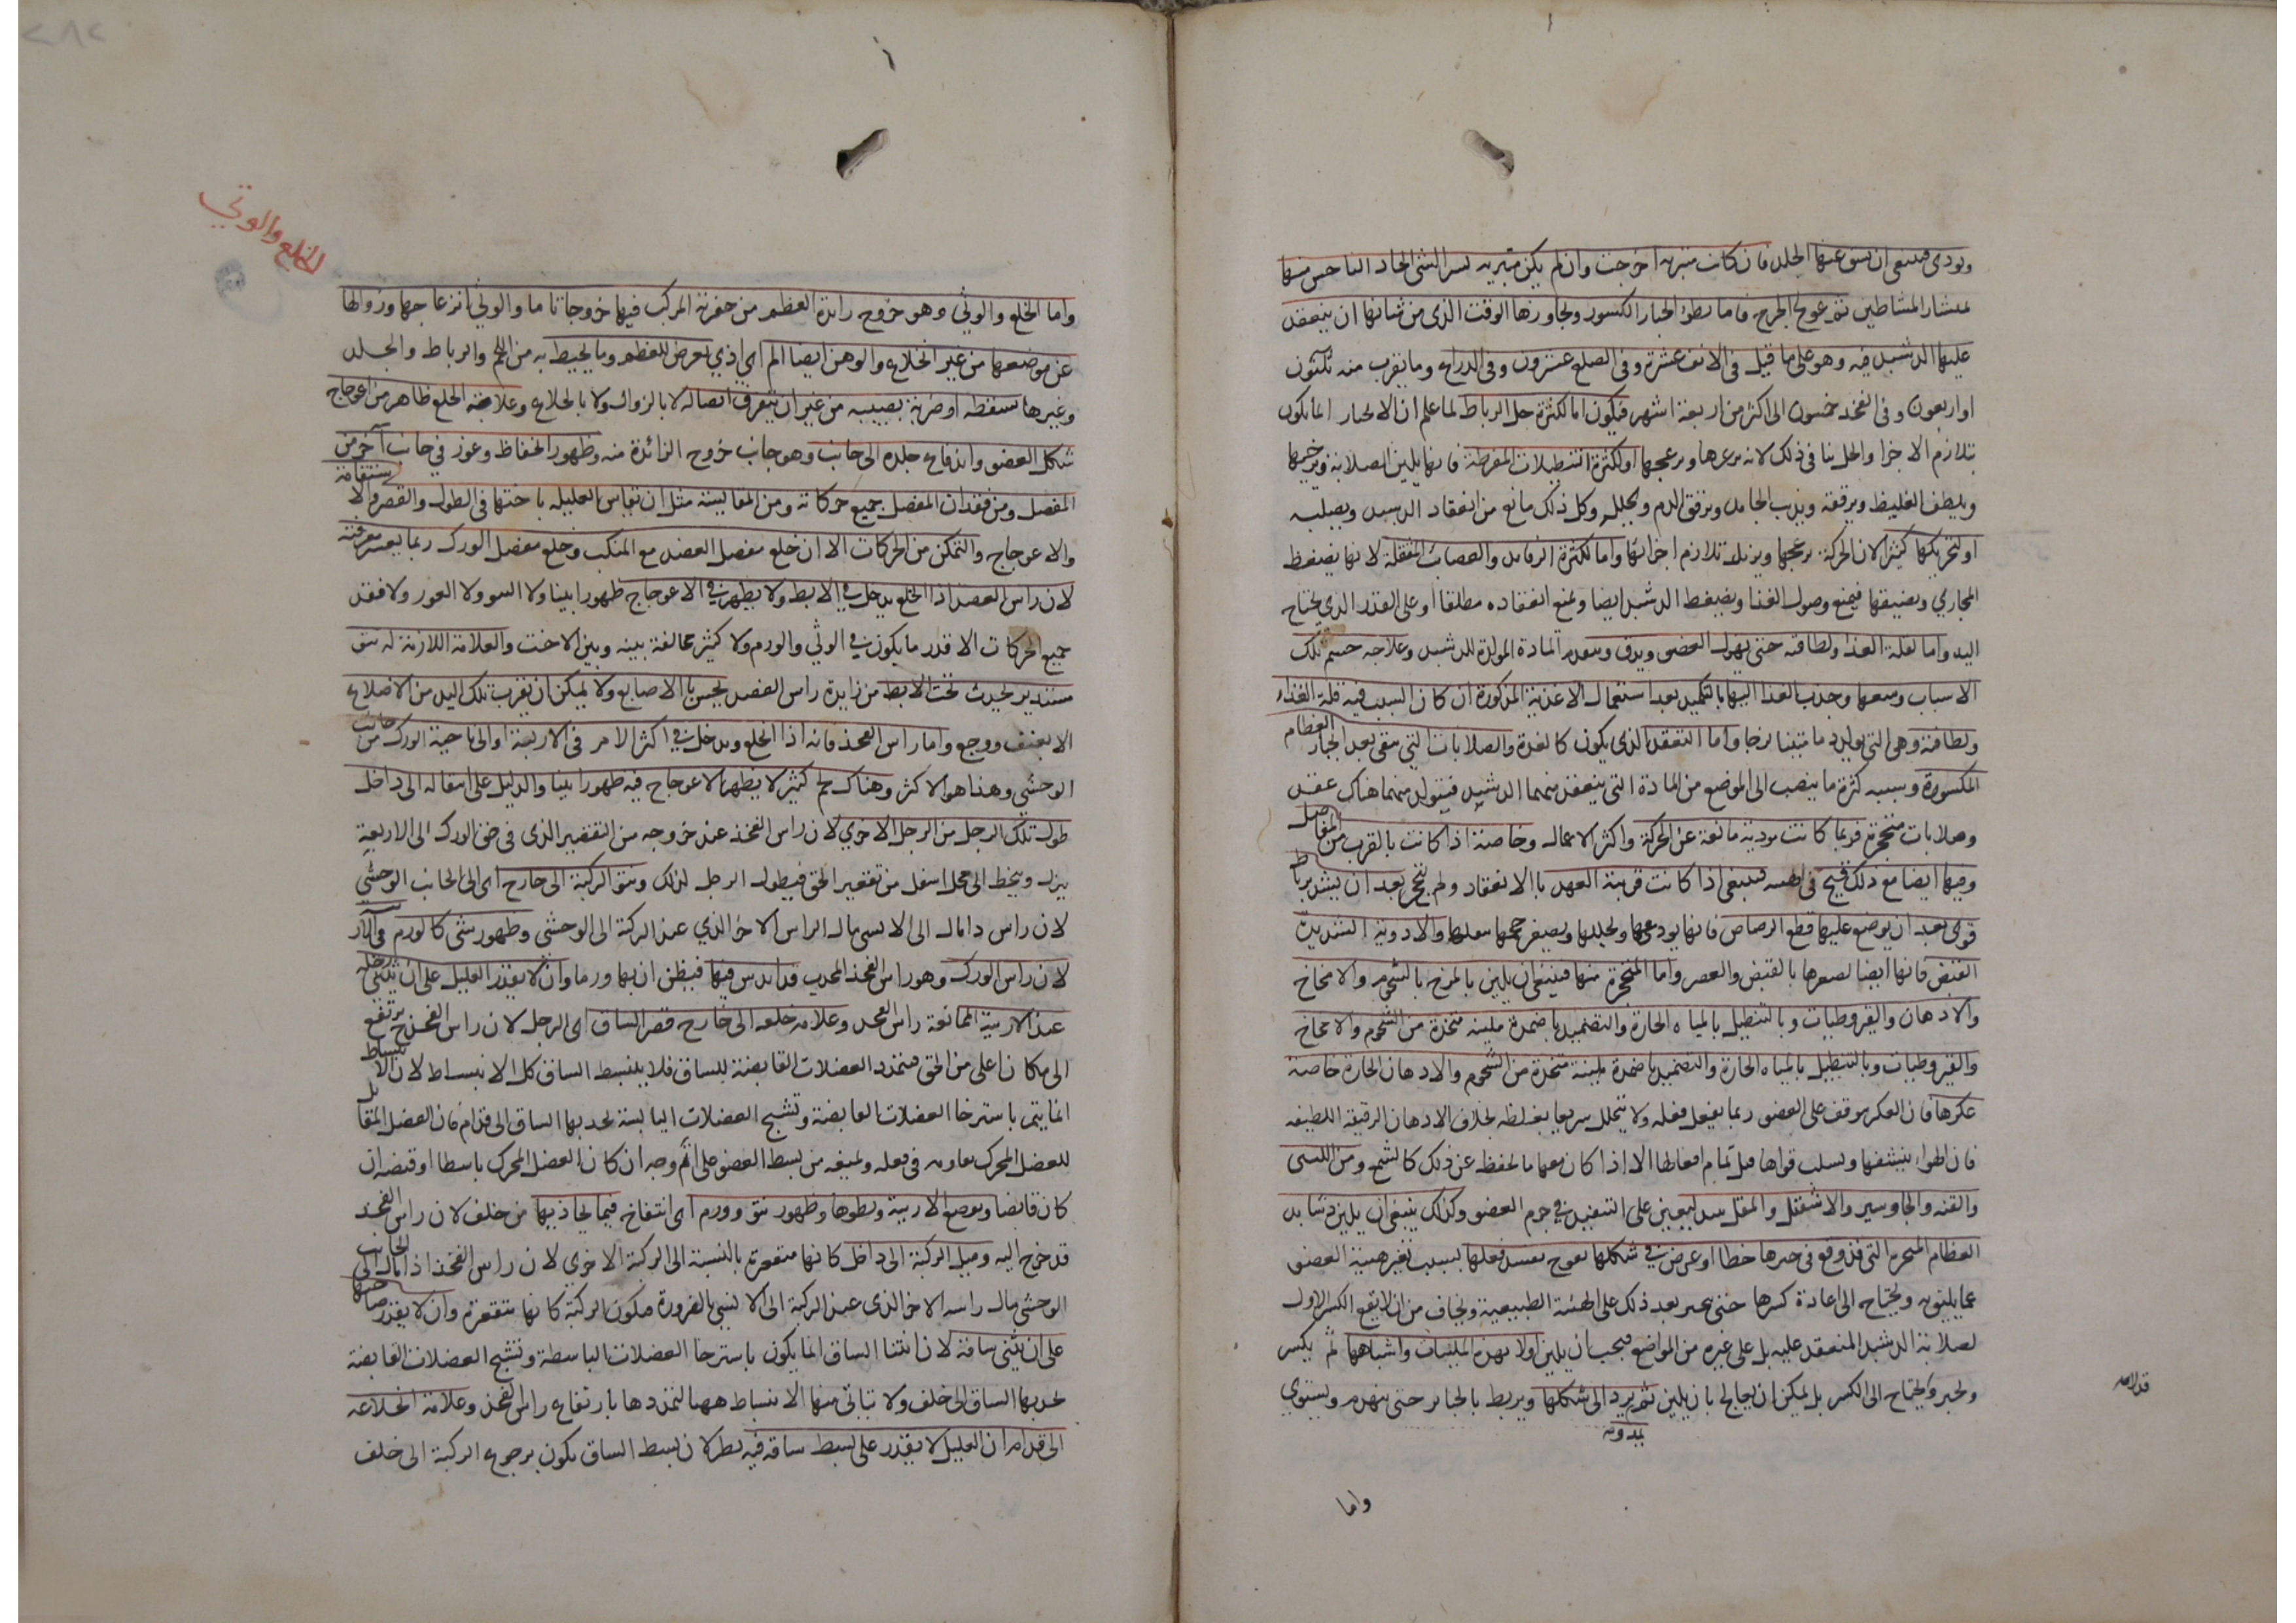 وتوذى فينبغى ان يشق عنها الجلد فان كانت متبرية اخرجت وان لم يكن متبرية نشر الشى الحاد الناخس منها
بمنشار المشاطين ثم عولج الجرح فاما بطؤ انجبار الكسور وتجاوزها الوقت الذى من شانها ان ينعقد
عليها الدشبد فيه وهو على ما قيل فى الانف عشرة وفى الضلع عشرون وفى الذراع وما يقرب منه ثلثون
او اربعون وفى الفخذ خمسون الى اكثر من اربعة اشهر فيكون اما لكثرة حل الرباط لما علم ان الانجبار انما يكون
بتلازم الاجزا والحل ينافى ذلك لانه يزعزعها ويزعجها او لكثرة التنطيلات المفرطة فانها يلين الصلابة ويرخيها
ويلطف الغليظ ويرققه ويذيب الجامد ويرقق الدم ويحلله وكل ذلك مانع من انعقاد الدشبد ويصلبه
او لتحريكها كثيرا لان الحركة يزعجها ويزيل تلازم اجزائها واما لكثرة الرفايد والعصائب المثقلة لانها يضغط
المجاري ويضيقها فيمنع وصول الغذا ويضغط الدشبد ايضا ويمنع انعقاده مطلقا او على القدر الذي يحتاج
اليه واما لقلة الغذا ولطافته حتى يهزل العضو ويدق ويعدم المادة المولدة للدشبد وعلاجه حسم تلك
الاسباب ومنعها وجذب الغذا اليها بالتكميد بعد استعمال الاغذية المذكورة ان كان السبب فيه قلة الغذاء
ولطافته وهى التى يولد دما متينا لزجا واما التعقد الذى يكون كالغدة والصلابات التى تبقى بعد انجبار العظام
المكسورة وسببه كثرة ما ينصب الى الموضع من المادة التى ينعقد منها الدشبد فيتولد منها هناك عقد
وصلابات متحجرة فربما كانت موذية مانعة عن الحركة واكثر الاعمال وخاصة اذا كانت بالقرب من المفاصل
وفيها ايضا مع ذلك قبح فى الهيئة فينبغى اذا كانت قريبة العهد بالانعقاد ولم يتحجر بعد ان يشد برباط
قوى بعد ان يوضع عليها قطع الرصاص فانها يودعها ويحللها ويصغر حجمها بثقلها والادوية الشديدة
القبض فانها ايضا تصغرها بالقبض والعصر واما المتحجرة منها فينبغى ان يلين بالمرخ بالشحوم والامخاخ
والادهان والقيروطيات وبالتنطيل بالمياه الحارة والتضميد باضمدة ملينة متخذة من الشحوم والامخاخ
والقيروطيات وبالتنطيل بالمياه الحارة والتضميد باضمدة ملينة متخذة من الشحوم والادهان الحارة خاصة
عكرها فان العكر يوقف على العضو ريثما يفعل فعله ولا يتحلل سريعا بغلظه بخلاف الادهان الرقيقة اللطيفة
فان الهوا ينشفها ويسلب قواها قبل تمام افعالها الا اذا كان معها ما يحفظ عن ذلك كالشمع ومن اللبنى
والقنه والجاوشير والاشق والمقل ليعين على التنفيذ فى جرم العضو وكذلك ينبغى ان يلين دشابد
العظام المنجبرة التى قد وقع فى جبرها خطا او عرض فى شكلها تعوج يفسد فعلها بسبب تغير هيئة العضو
عما يليق به ويحتاج الى اعادة كسرها حتى يجبر بعد ذلك على الهيئة الطبيعية ويخاف من ان لا يقع الكسر الاول
لصلابة الدشبد المنعقد عليه بل على غيره من المواضع فيجب ان يلين اولا بهذه الملينات واشباهها ثم يكسر
ويجبر ولا يحتاج الى الكسر بل يمكن ان يعالج بان يلين ثم يرد الى شكلها ويربط بالجبائر حتى ينهدم ويستوي
بدونه
واما
الخلع والوثي
واما الخلع والوثى وهو خروج زايدة العظم من حفرته المركب فيها خروجا تاما والوثي انزعاجها وزوالها
عن موضعها من غير انخلاع والوهن ايضا الم اي اذي يعرض للعظم وما يحيط به من اللحم والرباط والجلد
وغيرها بسقطة او ضربة يصيبه من غير ان يتفرق اتصاله لا بالزوال ولا بانخلاع وعلامة الخلع ظاهر من اعوجاج
شكل العضو واندفاع جلده الى جانب وهو جانب خروج الزائدة منه وظهور انخفاظ وغور في جانب آخر من
المفصل ومن فقدان المفصل جميع حركاته ومن المقايسة مثل ان تقاس العليلة باختها فى الطول والقصر والاستقامة
والاعوجاج والتمكن من الحركات الا ان خلع مفصل العضد مع المنكب وخلع مفصل الورك ربما يعسر معرفته
لان راس العضد اذا انخلع يدخل في الابط ولا يظهر في الاعوجاج ظهورا بينا ولا النتو ولا الغور ولا فقد
جميع الحركات الا قدر ما يكون في الوثي والورم ولا كثير مخالفة بينه وبين الاخت والعلامة اللازمة له نتو
مستدير يحدث تحت الابط من زايدة راس العضد يحس بالاصابع ولا يمكن ان يقرب تلك اليد من الاضلاع
الا بعنف ووجع واما راس الفخذ فانه اذا انخلع ودخل في اكثر الامر فى الاربية او الى ناحية الورك من جانب
الوحشي وهذا هو الاكثر وهناك لحم كثير لا يظهر الاعوجاج فيه ظهورا بينا والدليل على انتقاله الى داخل
طول تلك الرجل من الرجل الاخري لان راس الفخذ عند خروجه من التقعير الذى فى حق الورك الى الاربية
ينزل وينحط الى محل اسفل من تقعير الحق فيطول الرجل لذلك ونتو الركبة الى خارج اى الى الجانب الوحشي
لان راسه اذا مال الى الانسى مال الراس الاخر الذي عند الركبة الى الوحشى وظهور شى كالورم فى الار
لان راس الورك وهو راس الفخذ المحدب قد اندس فيها فيظن ان بها ورما وان لا يقدر العليل على ان يثني رجله
عند الاربية لممانعة راس الفخذ وعلامة خلعه الى خارج قصر الساق اى الرجل لان راس الفخذ ح يرتفع
الى مكان اعلى من الحق فيتمدد العضلات القابضة للساق فلا ينبسط الساق كل الانبساط لان الانبساط
انما يتم باسترخا العضلات القابضة وتشنج العضلات الباسطة يجذبها الساق الى قدام فان العضل المقابل
للعضل المحرك يعاونه فى فعله ويمنعه من بسط العضو على اتم وجه ان كان العضل المحرك باسطا او قبضه ان
كان قابضا وبعمق الاربية وبطوها وظهور نتو وورم اى انتفاخ فيما يحاذيها من خلف لان راس الفخذ
قد خرج اليه وميل الركبة الى داخل كانها منقعرة بالنسبة الى الركبة الاخري لان راس الفخذ اذا مال الى الجانب
الوحشى مال راسه الاخر الذى عند الركبة الى الانسي بالضرورة فيكون الركبة كانها متقعرة وان لا يقدر صاحبها
على ان يثني ساقه لان انثنا الساق انما يكون باسترخا العضلات الباسطة وتشنج العضلات القابضة
يجذبها الساق الى خلف ولا يتاتى منها الانبساط ههنا لتمددها بارتفاع راس الفخذ وعلامة انخلاعه
الى قدام ان العليل لا يقدر على بسط ساقه فيه نظر لان بسط الساق يكون برجوع الركبة الى خلف